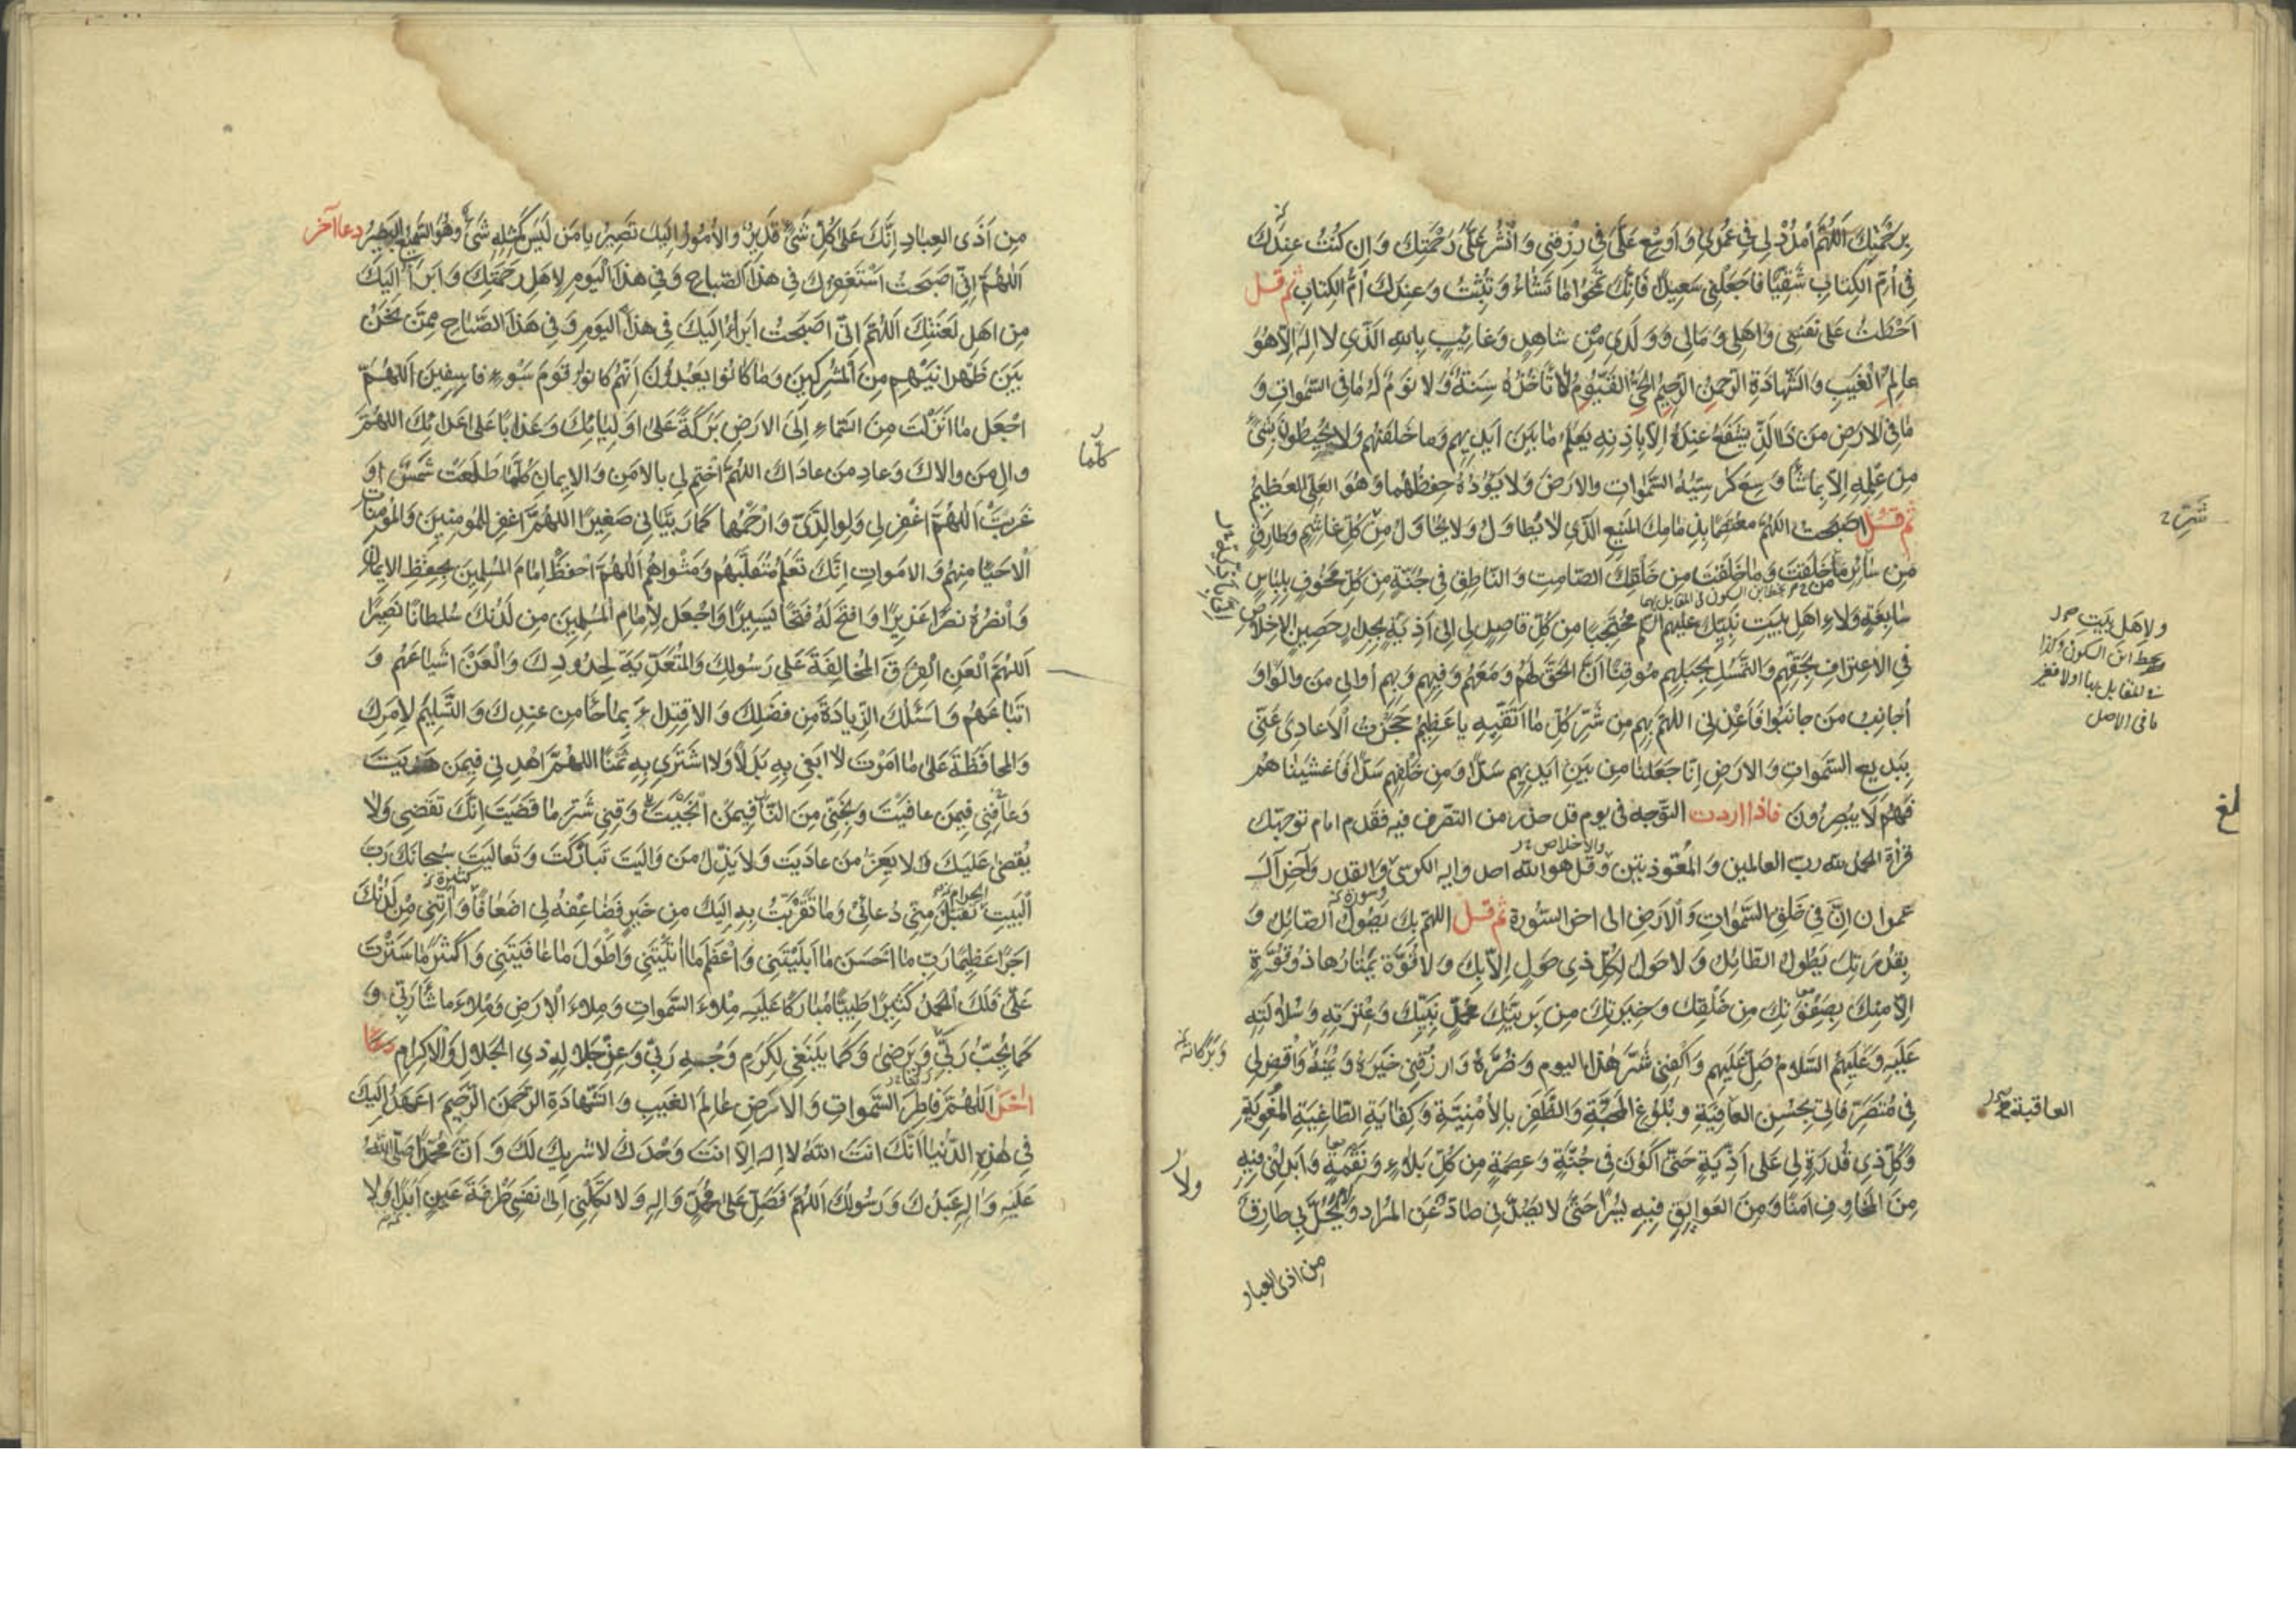 بِرَحْمَتِكَ اَللّهُمَّ امْدُدْ لي في عُمْري وَاَوْسِعْ عَلَىَّ في رِزْقي وَانْشُرْ عَلَىَّ رَحْمَتَكَ وَاِنْ كُنْتُ عِنْدَكَ
في اُمِّ الْكِتابِ شَقِيّاً فَاجْعَلْني سَعيداً فَاِنَّكَ تَمْحُوا ما تَشاءُ وَتُثْبِتُ وَعِنْدَكَ اُمُّ الْكِتابِ ثم قل
اَحَطْتُ عَلى نَفْسي وَاَهْلي وَمالي وَوَلَدي مِنْ شاهِدٍ وَغائِبٍ بِاللهِ الَّذي لا اِلهَ اِلاّ هُوَ
عالِمِ الْغَيْبِ وَالشَّهادَةِ الرَّحْمنُ الرَّحيمُ الْحَىُّ الْقَيُّومُ لا تَأْخُذُهُ سِنَةٌ وَلا نَوْمٌ لَهُ ما فِى السَّمواتِ وَ
ما فِى الْاَرْضِ مَنْ ذَا الَّذي يَشْفَعُ عِنْدَهُ اِلاّ بِاِذْنِهِ يَعْلَمُ ما بَيْنَ اَيْديهِمْ وَما خَلْفَهُمْ وَلا يُحيطُونَ بِشَىْءٍ
مِنْ عِلْمِهِ اِلاّ بِما شاءَ وَسِعَ كُرْسِيُّهُ السَّمواتِ وَالْاَرْضَ وَلا يَؤُدُهُ حِفْظُهُما وَهُوَ الْعَلِىُّ الْعَظيمُ
ثم قل اَصْبَحْتُ اللّهُمَّ مُعْتَصِماً بِذِمامِكَ الْمَنيعِ الَّذي لا يُطاوَلُ وَلا يُحاوَلُ مِنْ كُلِّ غاشِمٍ وَطارِقٍ
مِنْ سائِرِ ما خَلَقْتَ وَمَنْ خَلَقْتَ مِنْ خَلْقِكَ الصّامِتِ وَالنّاطِقِ في جُنَّةٍ مِنْ كُلِّ مَخُوفٍ بِلِباسٍ
سابِغَةٍ وَلاءِ اَهْلِ بَيْتِ نَبِيِّكَ عليهم السلم مُحْتَجِباً مِنْ كُلِّ قاصِدٍ لي اِلى اَذِيَّةٍ بِجِدارٍ حَصينِ الْاِخْلاصِ
فِى الْاِعْتِرافِ بِحَقِّهِمْ وَالتَّمَسُّكِ بِحَبْلِهِمْ مُوقِناً اَنَّ الْحَقَّ لَهُمْ وَمَعَهُمْ وَفيهِمْ وَبِهِمْ اُوالي مَنْ والَوْا وَ
اُجانِبُ مَنْ جانَبُوا فَاَعِذْني اللّهُمَّ بِهِمْ مِنْ شَرِّ كُلِّ ما اَتَّقيهِ يا عَظيمُ حَجَزْتُ الْاَعادِىَ عَنّي
بِبَديعِ السَّمواتِ وَالْاَرْضِ اِنّا جَعَلْنا مِنْ بَيْنِ اَيْديهِمْ سَدّاً وَمِنْ خَلْفِهِمْ سَدّاً فَاَغْشَيْناهُمْ
فَهُمْ لا يُبْصِرُونَ فاذا اردت التوجه في يوم قد حذر من التصرف فيه فقدم امام توجهك
قراة الحمد لله رب العالمين والمعوذتين وقل هو الله احد واية الكرسي والقدر واخر آل
عمران اِنَّ في خَلْقِ السَّمواتِ وَالْاَرْضِ الى اخر السورة ثم قل اللّهُمَّ بِكَ يَصُولُ الصّائِلُ وَ
بِقُدْرَتِكَ يَطُولُ الطّائِلُ وَلا حَوْلَ لِكُلِّ ذي حَوْلٍ اِلاّ بِكَ وَلا قُوَّةَ يَمْتارُها ذُو قُوَّةٍ
اِلاّ مِنْكَ بِصَفْوَتِكَ مِنْ خَلْقِكَ وَخِيَرَتِكَ مِنْ بَرِيَّتِكَ مُحَمَّدٍ نَبِيِّكَ وَعِتْرَتِهِ وَسُلالَتِهِ
عَلَيْهِ وَعَلَيْهِمُ السَّلامُ صَلِّ عَلَيْهِمْ وَاكْفِني شَرَّ هذَا الْيَوْمِ وَضُرَّهُ وَارْزُقْني خَيْرَهُ وَيُمْنَهُ وَاقْضِ لي
في مُتَصَرَّفاتي بِحُسْنِ الْعافِيَةِ وَبُلُوغِ الْمَحَبَّةِ وَالظَّفَرِ بِالْاُمْنِيَّةِ وَكِفايَةِ الطّاغِيَةِ الْمُغْوِيَةِ
وَكُلِّ ذي قُدْرَةٍ لي عَلى اَذِيَّةٍ حَتّى اَكُونَ في جُنَّةٍ وَعِصْمَةٍ مِنْ كُلِّ بَلاءٍ وَنَقِمَةٍ وَاَبْدِلْني فيهِ
مِنَ الْمَخاوِفِ اَمْناً وَمِنَ الْعَوائِقِ فيهِ يُسْراً حَتّى لا يَصُدَّني صادٌّ عَنِ الْمُرادِ وَلا يَحُلَّ بي طارِقٌ
من اذى العباد
ولاهل بيت
ما في الاصل
العاقبة
وبركاته
ولا
مِنْ اَذَى الْعِبادِ اِنَّكَ عَلى كُلِّ شَىْءٍ قَديرٌ وَالْاُمُورُ اِلَيْكَ تَصيرُ يا مَنْ لَيْسَ كَمِثْلِهِ شَىْءٌ وَهُوَ السَّميعُ الْبَصيرُ دعا آخر
اَللّهُمَّ اِنّي اَصْبَحْتُ اَسْتَغْفِرُكَ في هذَا الصَّباحِ وَفي هذَا الْيَوْمِ لِاَهْلِ رَحْمَتِكَ وَاَبْرَأُ اِلَيْكَ
مِنْ اَهْلِ لَعْنَتِكَ اَللّهُمَّ اِنّي اَصْبَحْتُ اَبْرَأُ اِلَيْكَ في هذَا الْيَوْمِ وَفي هذَا الصَّباحِ مِمَّنْ نَحْنُ
بَيْنَ ظَهْرانَيْهِمْ مِنَ الْمُشْرِكينَ وَما كانُوا يَعْبُدُونَ اِنَّهُمْ كانُوا قَوْمَ سَوْءٍ فاسِقينَ اَللّهُمَّ
اجْعَلْ ما اَنْزَلْتَ مِنَ السَّماءِ اِلَى الْاَرْضِ بَرَكَةً عَلى اَوْلِيائِكَ وَعَذاباً عَلى اَعْدائِكَ اللّهُمَّ
والِ مَنْ والاكَ وَعادِ مَنْ عاداكَ اللّهُمَّ اخْتِمْ لي بِالْاَمْنِ وَالْايمانِ كُلَّما طَلَعَتْ شَمْسٌ اَوْ
غَرَبَتْ اَللّهُمَّ اغْفِرْ لي وَلِوالِدَىَّ وَارْحَمْهُما كَما رَبَّياني صَغيراً اللّهُمَّ اغْفِرْ لِلْمُؤْمِنينَ وَالْمُؤْمِناتِ
الْاَحْياءِ مِنْهُمْ وَالْاَمْواتِ اِنَّكَ تَعْلَمُ مُتَقَلَّبَهُمْ وَمَثْواهُمْ اَللّهُمَّ احْفَظْ اِمامَ الْمُسْلِمينَ بِحِفْظِ الْايمانِ
وَانْصُرْهُ نَصْراً عَزيزاً وَافْتَحْ لَهُ فَتْحاً يَسيراً وَاجْعَلْ لِاِمامِ الْمُسْلِمينَ مِنْ لَدُنْكَ سُلْطاناً نَصيراً
اَللّهُمَّ الْعَنِ الْفِرَقَ الْمُخالِفَةَ عَلى رَسُولِكَ وَالْمُتَعَدِّيَةَ لِحُدُودِكَ وَالْعَنْ اَشْياعَهُمْ وَ
اَتْباعَهُمْ وَاَسْئَلُكَ الزِّيادَةَ مِنْ فَضْلِكَ وَالْاِقْتِداءَ بِما جاءَ مِنْ عِنْدِكَ وَالتَّسْليمَ لِاَمْرِكَ
وَالْمُحافَظَةَ عَلى ما اَمَرْتَ لا اَبْغي بِهِ بَدَلاً وَلا اَشْتَري بِهِ ثَمَناً اللّهُمَّ اهْدِني فيمَنْ هَدَيْتَ
وَعافِني فيمَنْ عافَيْتَ وَنَجِّني مِنَ النّارِ فيمَنْ اَنْجَيْتَ وَقِني شَرَّ ما قَضَيْتَ اِنَّكَ تَقْضي وَلا
يُقْضى عَلَيْكَ وَلا يَعِزُّ مَنْ عادَيْتَ وَلا يَذِلُّ مَنْ والَيْتَ تَبارَكْتَ وَتَعالَيْتَ سُبْحانَكَ رَبَّ
الْبَيْتِ الحرام تَقَبَّلْ مِنّي دُعائي وَما تَقَرَّبْتُ بِهِ اِلَيْكَ مِنْ خَيْرٍ فَضاعِفْهُ لي اَضْعافاً كثيرة وَآتِني مِنْ لَدُنْكَ
اَجْراً عَظيماً رَبِّ ما اَحْسَنَ ما اَبْلَيْتَني وَاَعْظَمَ ما آتَيْتَني وَاَطْوَلَ ما عافَيْتَني وَاَكْثَرَ ما سَتَرْتَ
عَلَىَّ فَلَكَ الْحَمْدُ كَثيراً طَيِّباً مُبارَكاً عَلَيْهِ مِلْاَ السَّمواتِ وَمِلْاَ الْاَرْضِ وَمِلْاَ ما شاءَ رَبّي وَ
كَما يُحِبُّ رَبّي وَيَرْضى وَكَما يَنْبَغي لِكَرَمِ وَجْهِ رَبّي وَعِزِّ جَلالِهِ ذِى الْجَلالِ وَالْاِكْرامِ دعاء
اخر اَللّهُمَّ فاطِرَ السَّمواتِ وَالْاَرْضِ عالِمَ الْغَيْبِ وَالشَّهادَةِ الرَّحْمنَ الرَّحيمَ اَعْهَدُ اِلَيْكَ
في هذِهِ الدُّنْيا اَنَّكَ اَنْتَ اللهُ لا اِلهَ اِلاّ اَنْتَ وَحْدَكَ لا شَريكَ لَكَ وَاَنَّ مُحَمَّداً صَلَّى اللهُ
عَلَيْهِ وَآلِهِ عَبْدُكَ وَرَسُولُكَ اَللّهُمَّ فَصَلِّ عَلى مُحَمَّدٍ وَآلِهِ وَلا تَكِلْني اِلى نَفْسي طَرْفَةَ عَيْنٍ اَبَداً وَلا
كلّما